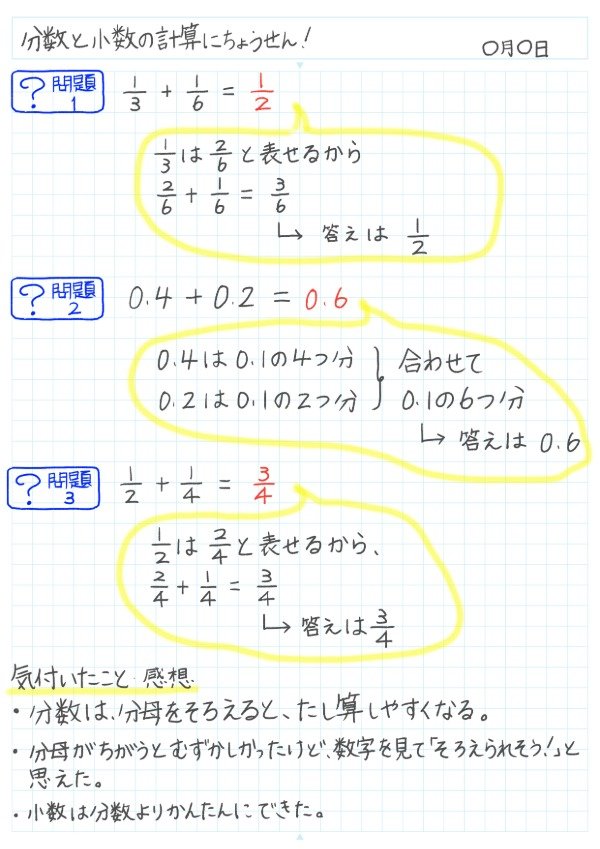 分数と小数の計算にちょうせん!
〇月〇日
? 問題1 1/3 + 1/6 = 1/2
1/3は2/6と表せるから
2/6 + 1/6 = 3/6
↳ 答えは 1/2
? 問題2 0.4 + 0.2 = 0.6
0.4は0.1の4つ分 } 合わせて
0.2は0.1の2つ分 } 0.1の6つ分
↳ 答えは 0.6
? 問題3 1/2 + 1/4 = 3/4
1/2は2/4と表せるから、
2/4 + 1/4 = 3/4
↳ 答えは3/4
気付いたこと・感想
・分数は、分母をそろえると、たし算しやすくなる。
・分母がちがうとむずかしかったけど、数字を見て「そろえられそう!」と
思えた。
・小数は分数よりかんたんにできた。